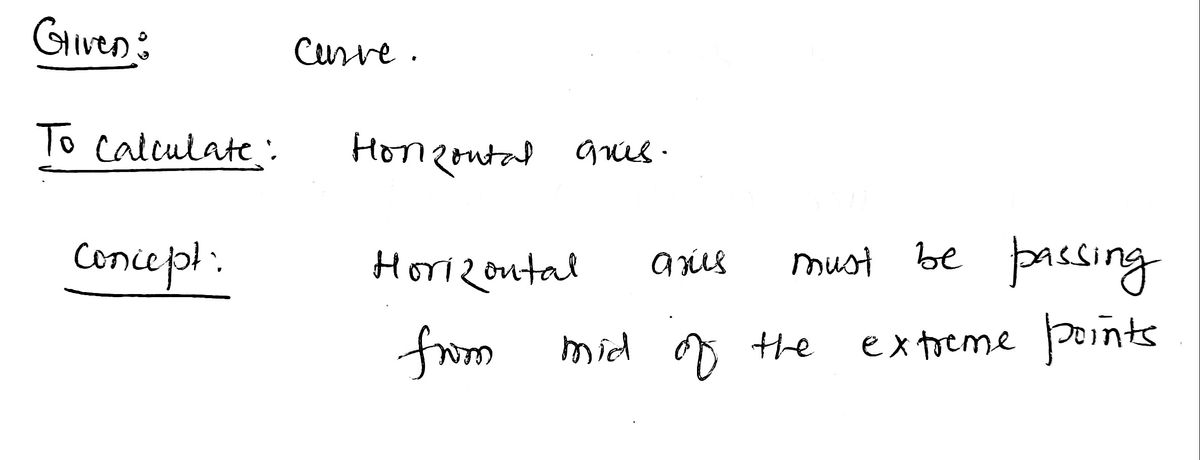 Given: Curve.
To Calculate: Horizontal axis.
Concept: Horizontal axis must be passing
from mid of the extreme points